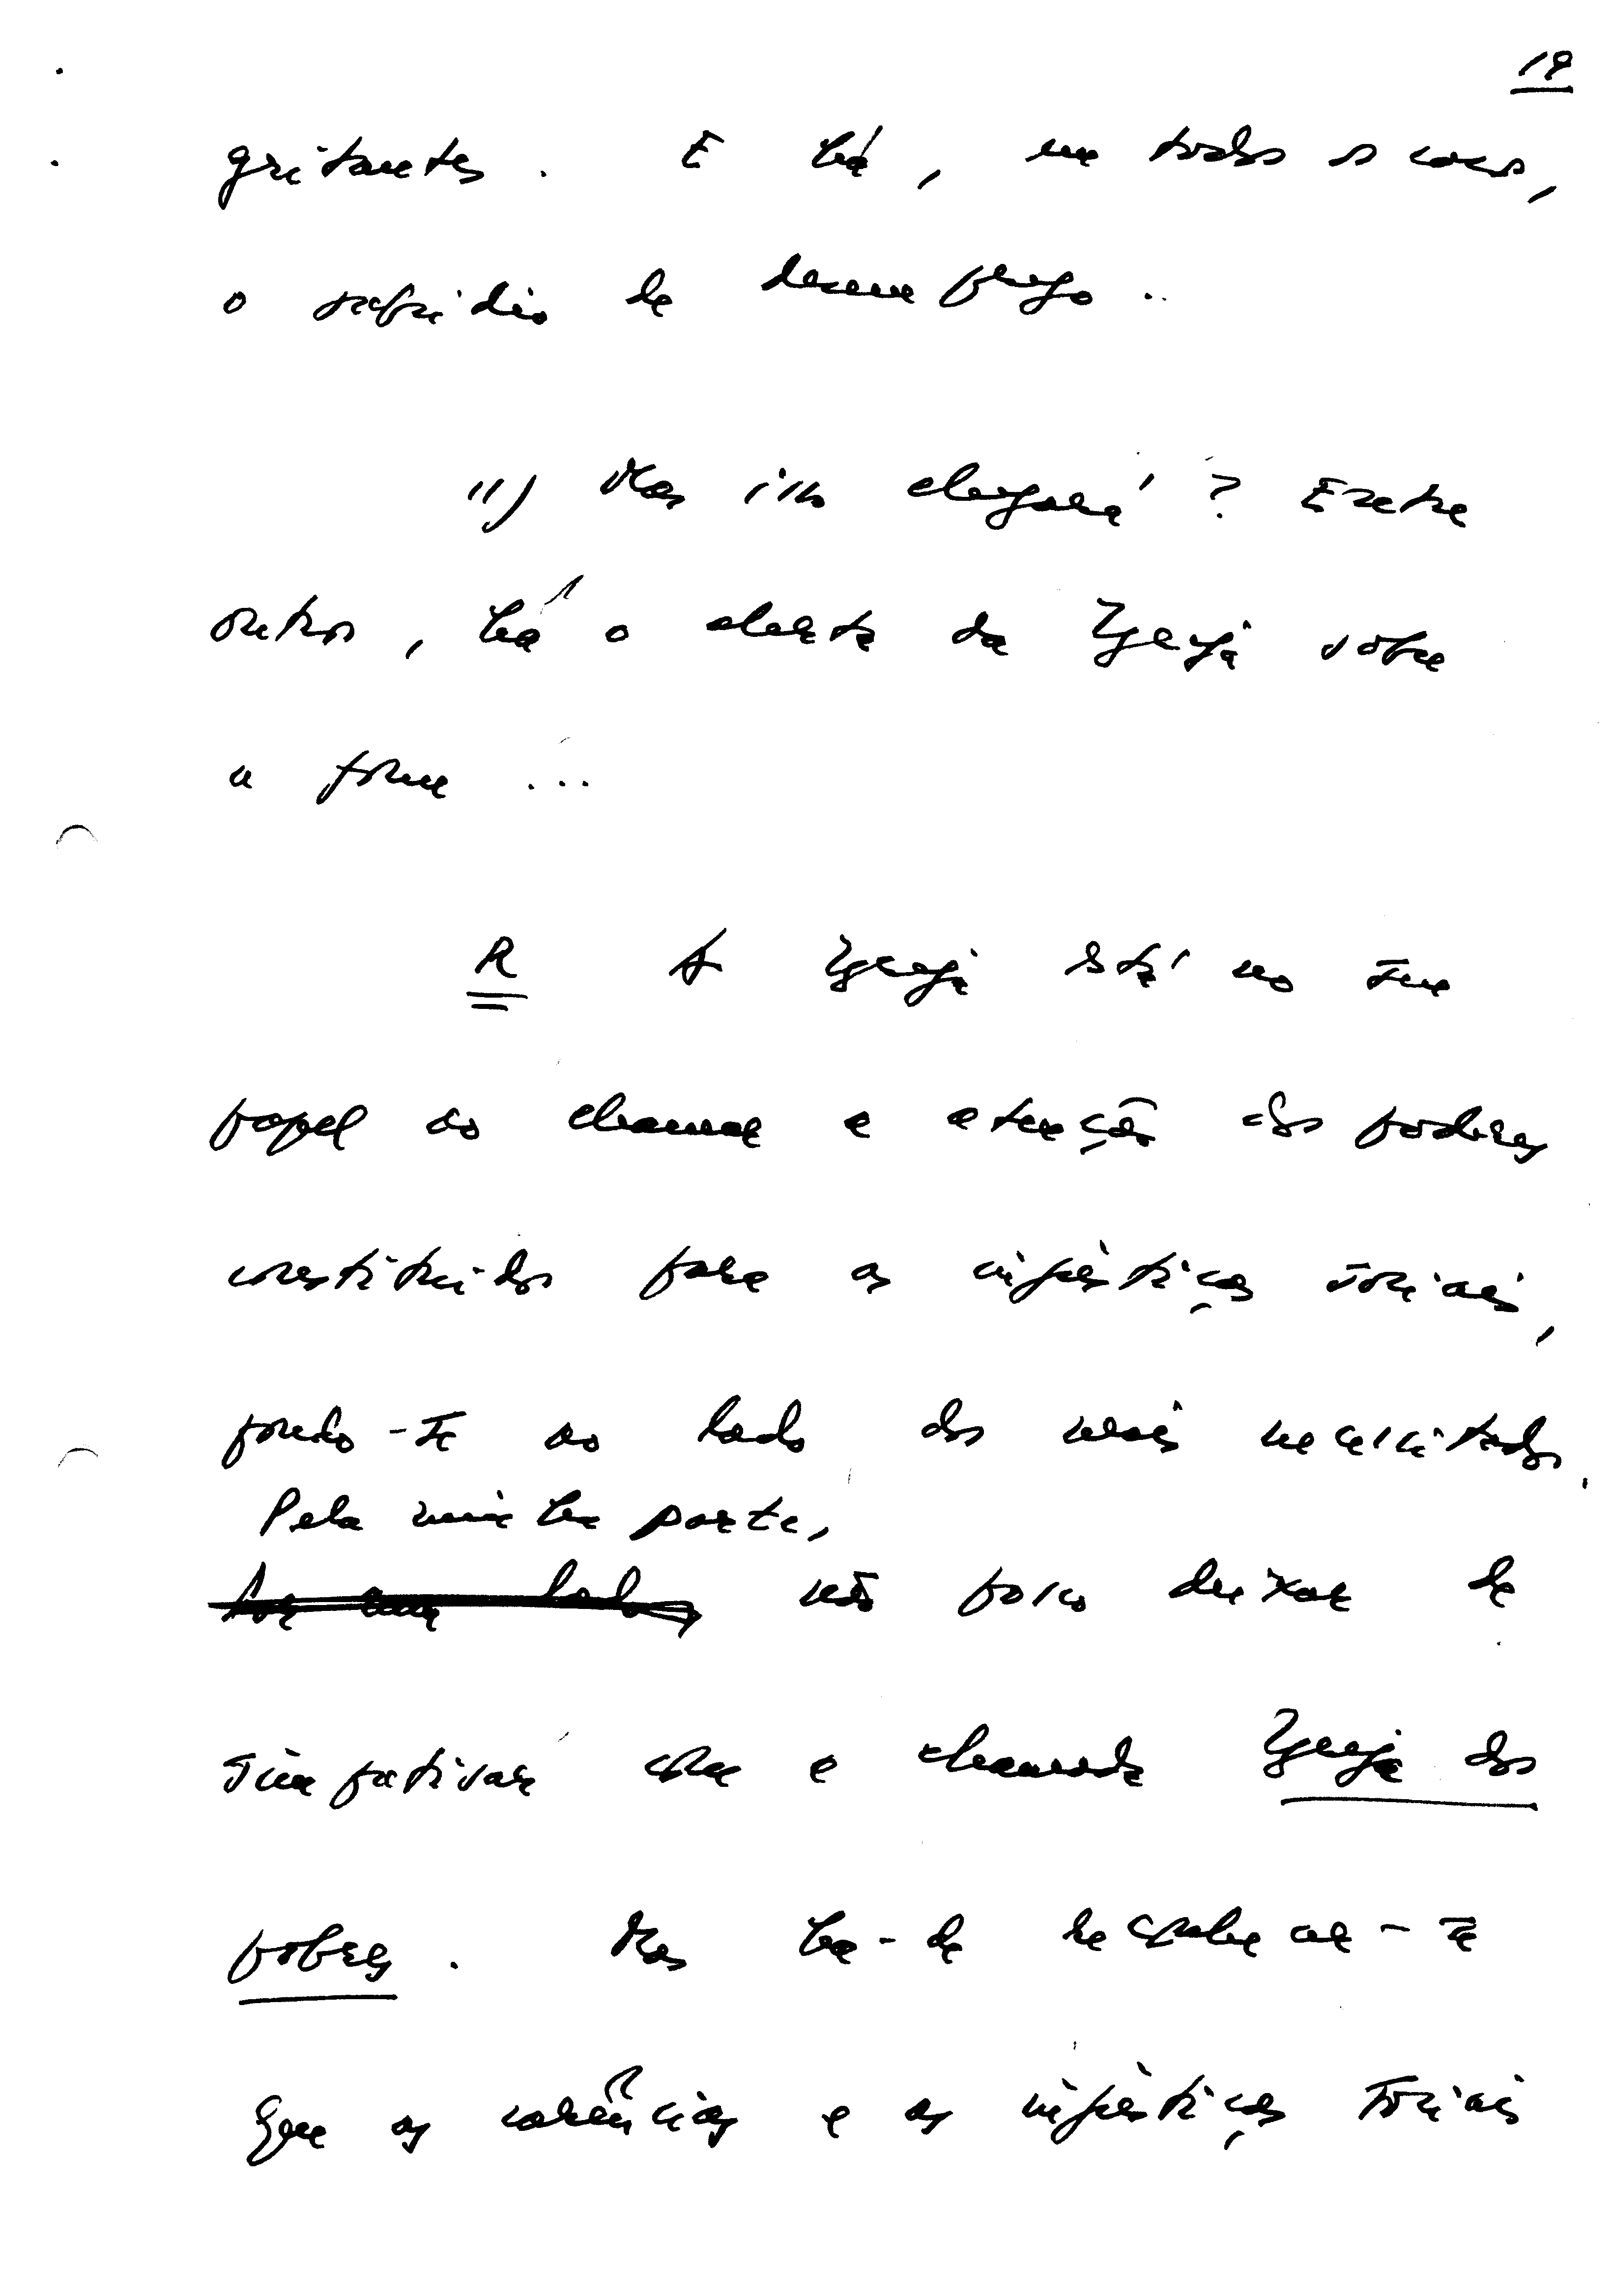 19
gritantes. E há, em todo o caso,
o subsídio de desemprego..
11) Mas isso chegará? Entre
outros, há o alerta da Igreja sobre
a fome ...
R A Igreja está no seu
papel ao chamar a atenção dos poderes
constituídos para as injustiças sociais,
pondo-se ao lado dos mais necessitados.
Pela minha parte,
não posso deixar de
simpatizar com a chamada Igreja dos
pobres. Mas há-de reconhecer-se
que as carências e as injustiças sociais